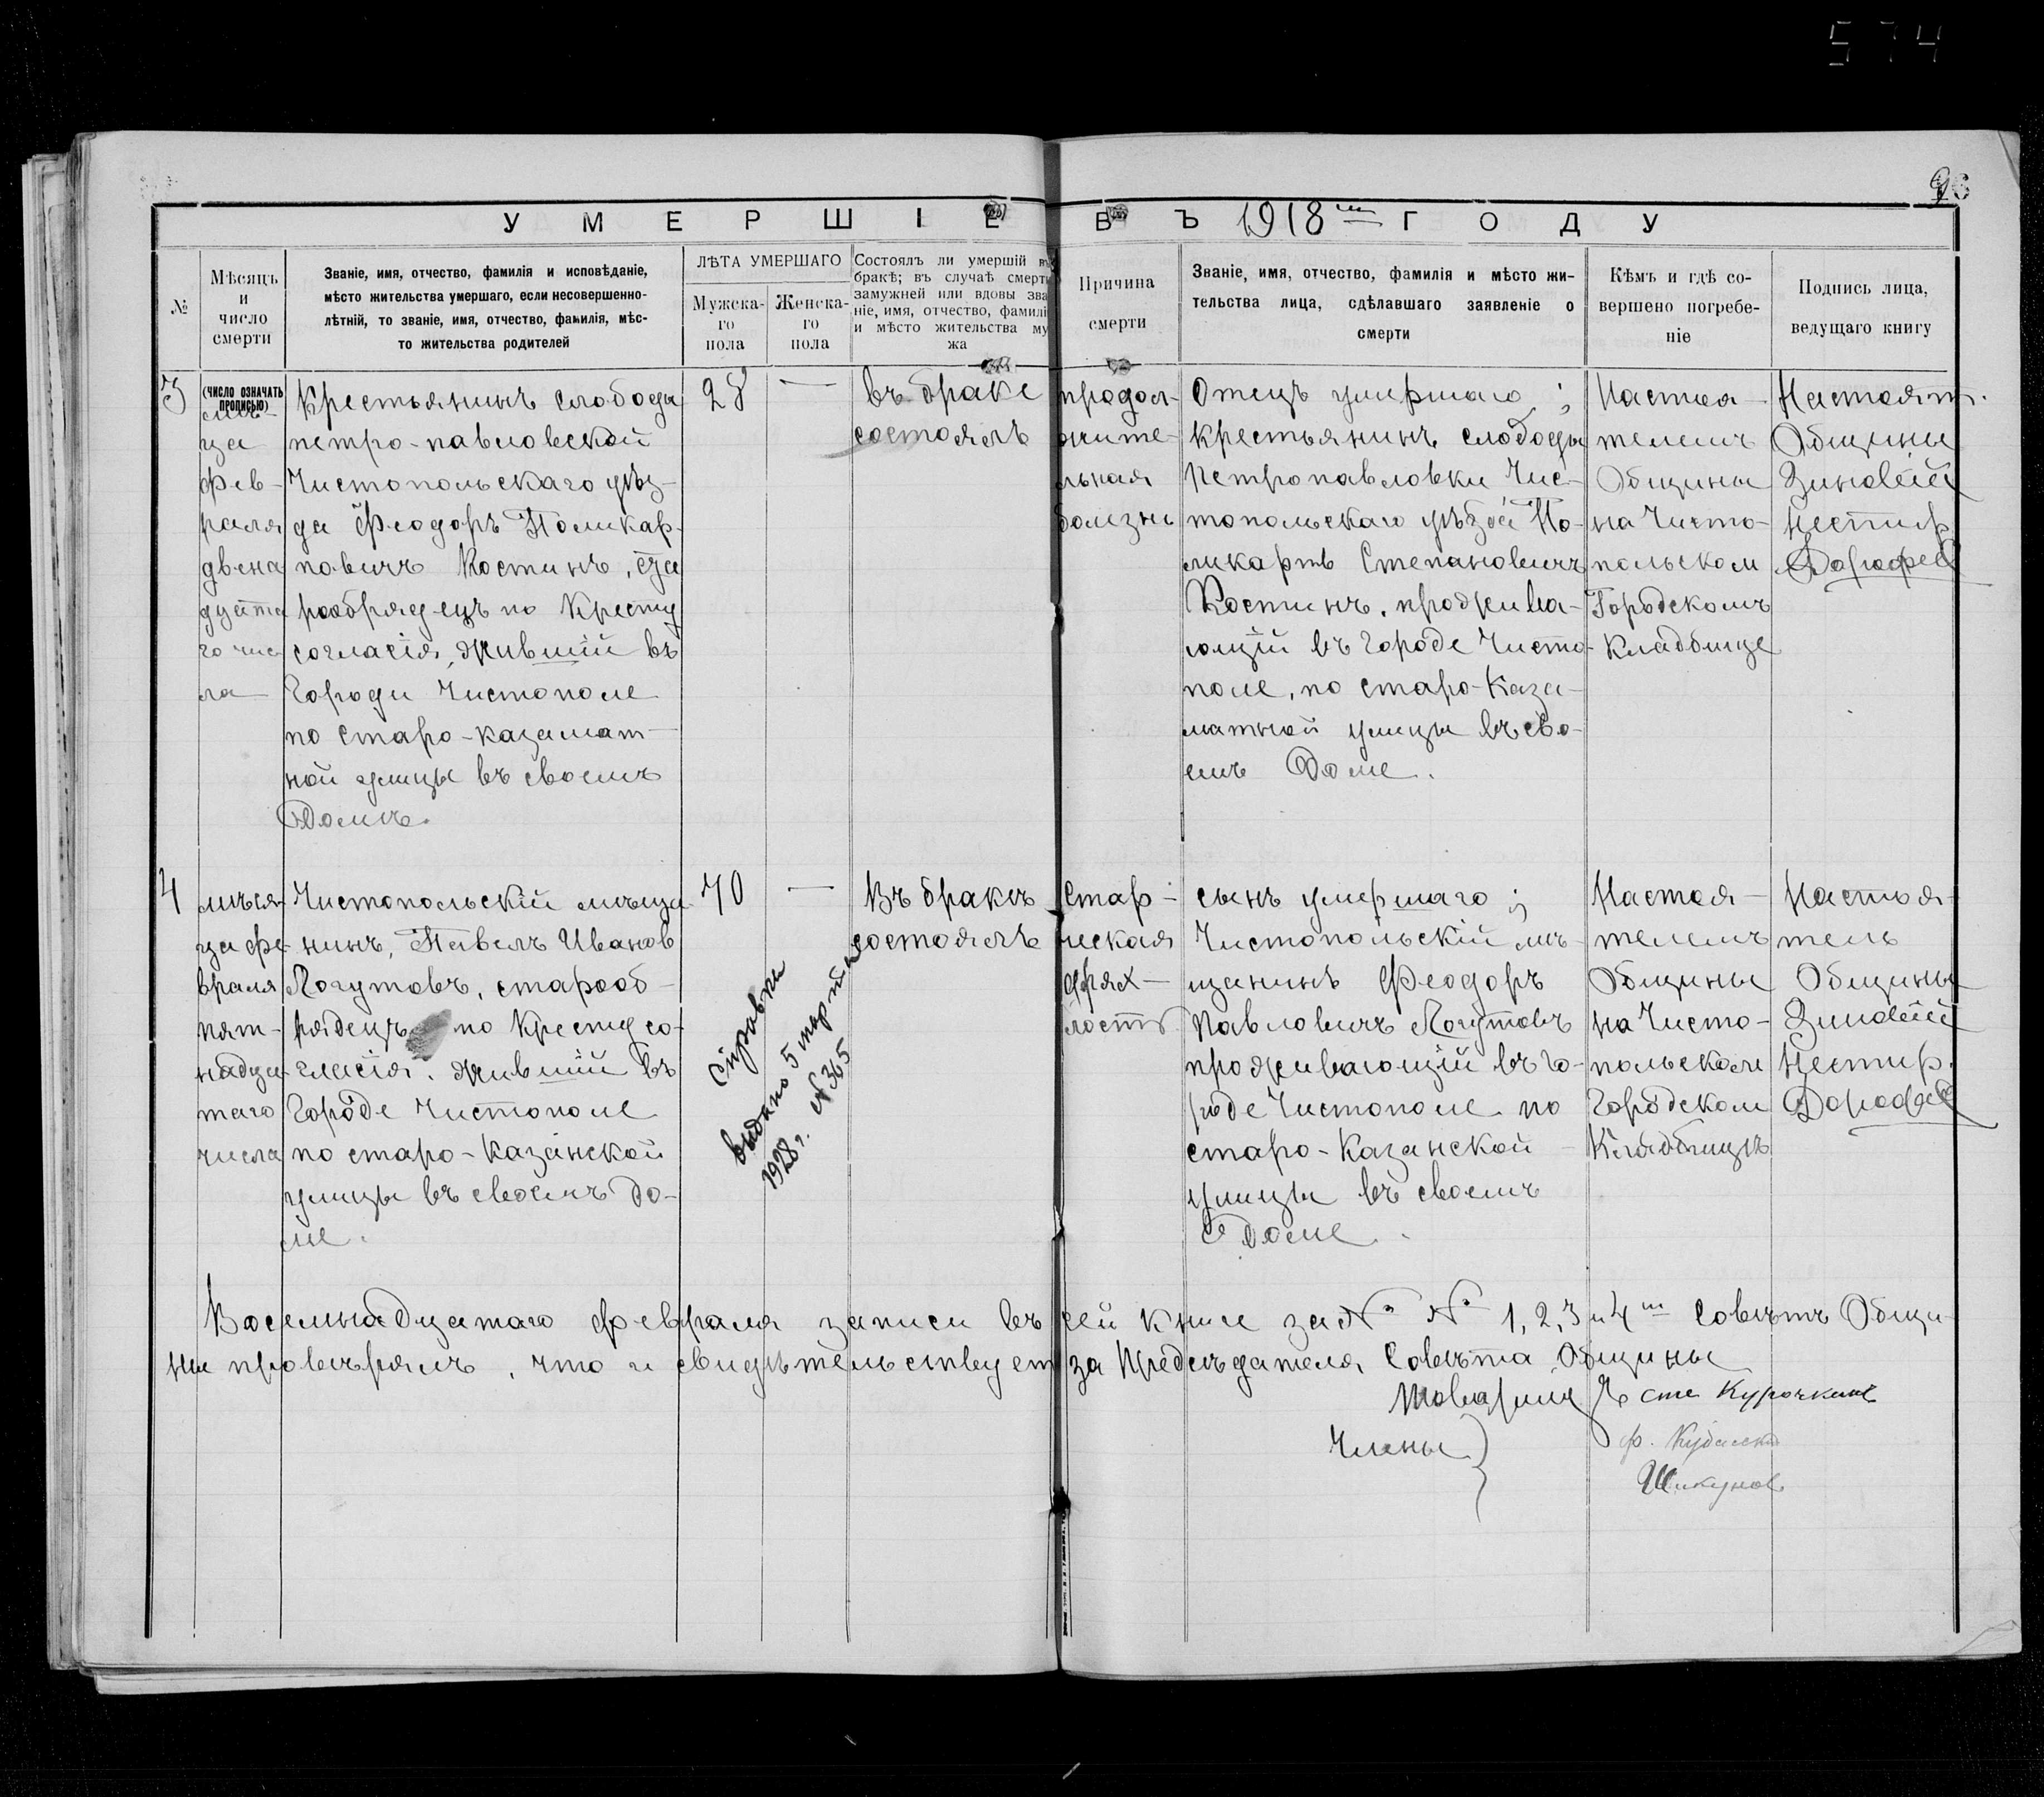 574
96
УМЕРШІЕ ВЪ 1918мъ ГОДУ
№
Мѣсяцъ
и
число
смерти
Званіе, имя, отчество, фамилія и исповѣданіе,
мѣсто жительства умершаго, если несовершенно-
лѣтній, то званіе, имя, отчество, фамилія, мѣс-
то жительства родителей
ЛѢТА УМЕРШАГО
Мужска-
го
пола
Женска-
го
пола
Состоялъ ли умершій въ
бракѣ; въ случаѣ смерти
замужней или вдовы зва
ніе, имя, отчество, фамилі
и мѣсто жительства му
жа
Причина
смерти
Званіе, имя, отчество, фамилія и мѣсто жи-
тельства лица, сдѣлавшаго заявленіе о
смерти
Кѣмъ и гдѣ со-
вершено погребе-
ніе
Подпись лица,
ведущаго книгу
(ЧИСЛО ОЗНАЧАТЬ
ПРОПИСЬЮ)
3
ца
фев-
раля
двена
дцата
го чис
ла
Крестьянинъ слободы
петро-павловской
Чистопольскаго уѣз-
да Феодоръ Поликар-
повичъ Костинъ, ста
рообрядецъ по Кресту
согласія, жившій въ
Городи Чистополе
по старо-казамат-
ной улицы въ своемъ
Домъ.
28
—
въ браке
состоялъ
продол-
жите-
льная
болезнь
Отецъ умершаго;
крестьянинъ слободы
Петропавловки Чис-
топольскаго уѣзда По-
ликарпъ Степановичъ
Костинъ, прожива-
ющій въ Городе Чисто-
поле, по старо-Каза-
матной улицы въ сво-
емъ Доме.
Настоя-
телемъ
Общины
на Чисто-
польском
Городскомъ
Кладбище
Настоят.
Общины
Зиновій
Нестир.
Дорофее
4
мѣся-
ца фе-
враля
пят-
надца-
таго
числа
Чистопольскій мѣща-
нинъ, Павелъ Иванов
Логутовъ, старооб-
рядецъ по Кресту со-
гласія. жившій въ
Городе Чистополе
по старо-Казанской
улицы въ своемъ до-
ме.
70
—
Въ бракъ
состоялъ
Справки
выдано 5 марта
1928 г. № 365
Стар-
ческая
дрях-
лость
сынъ умершаго;
Чистопольскій мѣ-
щанинъ Феодоръ
Павловичъ Логутовъ
проживающій въ го-
роде Чистополе по
старо-Казанской
улицы въ своемъ
доме.
Настоя-
телемъ
Общины
на Чисто-
польском
Городском
Кладбищѣ
Настоя-
тель
Общины
Зиновій
Нестир.
Дорофее
Восемнадцатаго февраля записи въ сей книге за № № 1, 2, 3 и 4мъ Совѣтъ Общи-
ны провѣрялъ, что и свидѣтельствует за Председателя Совѣта Общины
Товарищ Курочкинъ
Члены
Шикунов